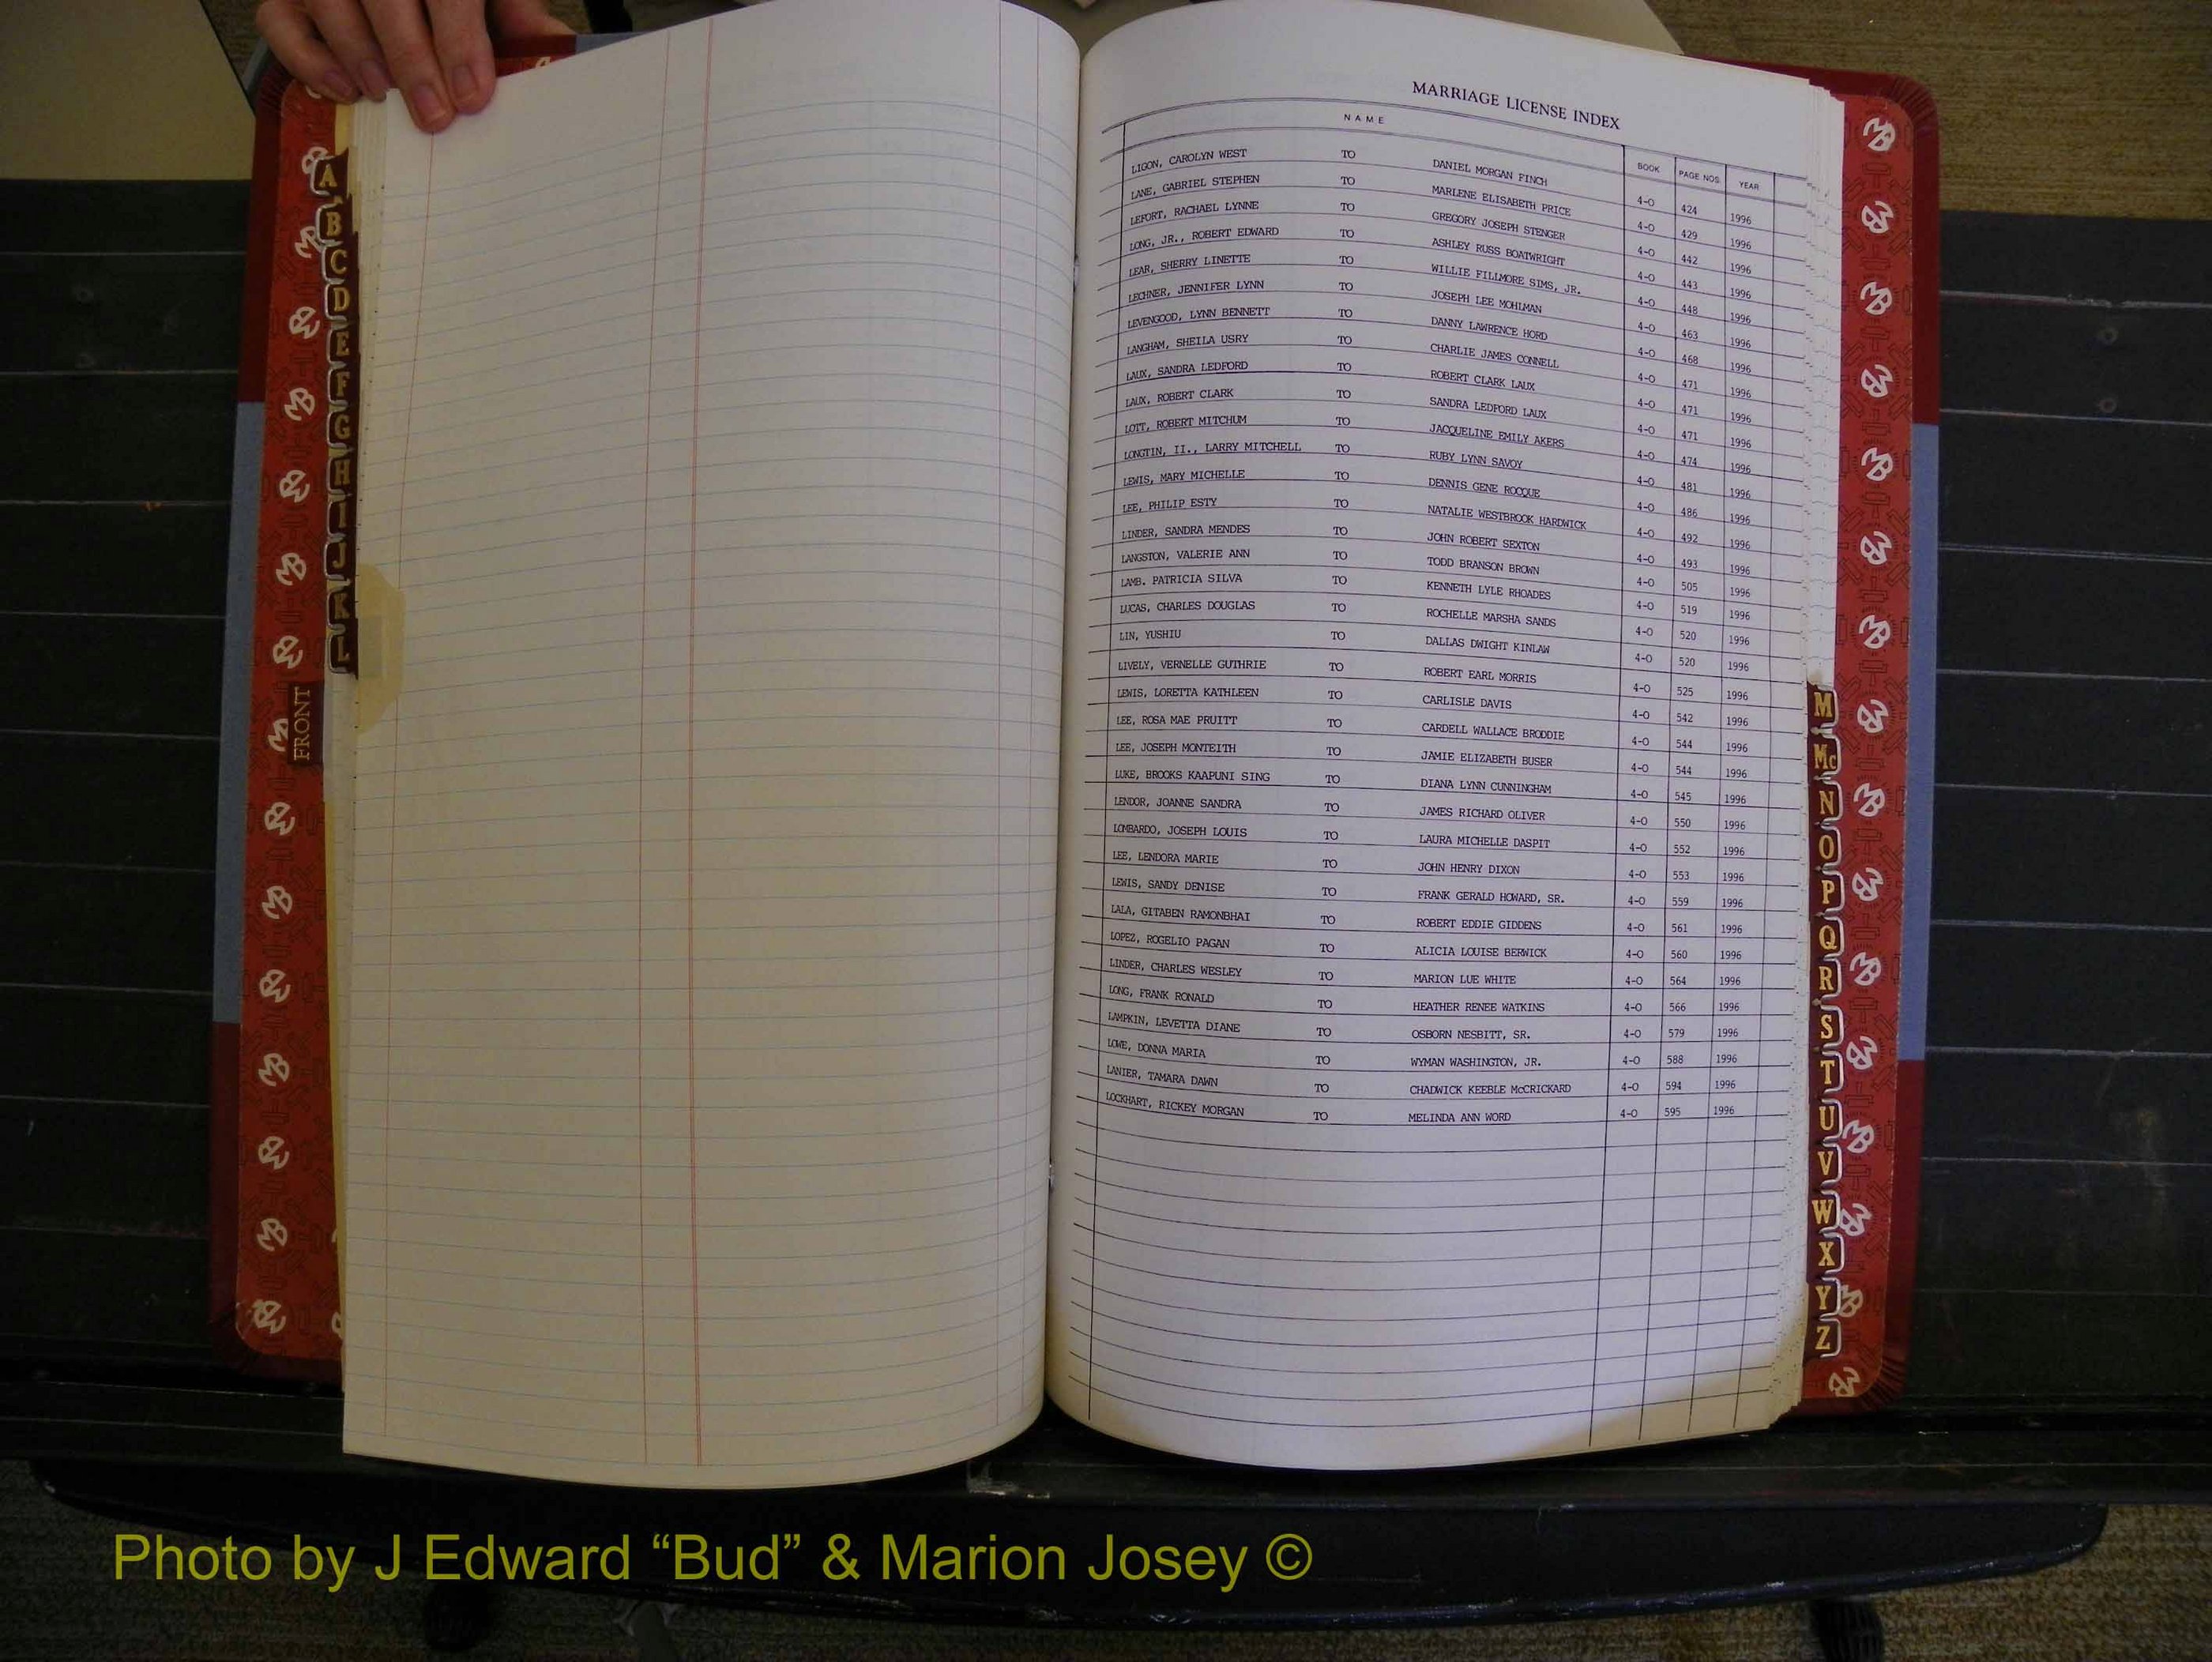 MARRIAGE LICENSE INDEX
NAME BOOK PAGE NOS. YEAR
LIGON, CAROLYN WEST TO DANIEL MORGAN FINCH 4-O 424 1996
LANE, GABRIEL STEPHEN TO MARLENE ELISABETH PRICE 4-O 429 1996
LEFORT, RACHAEL LYNNE TO GREGORY JOSEPH STENGER 4-O 442 1996
LONG, JR., ROBERT EDWARD TO ASHLEY RUSS BOATWRIGHT 4-O 443 1996
LEAR, SHERRY LINETTE TO WILLIE FILLMORE SIMS, JR. 4-O 448 1996
LECHNER, JENNIFER LYNN TO JOSEPH LEE MOHLMAN 4-O 463 1996
LEVENGOOD, LYNN BENNETT TO DANNY LAWRENCE HORD 4-O 468 1996
LANGHAM, SHEILA USRY TO CHARLIE JAMES CONNELL 4-O 471 1996
LAUX, SANDRA LEDFORD TO ROBERT CLARK LAUX 4-O 471 1996
LAUX, ROBERT CLARK TO SANDRA LEDFORD LAUX 4-O 471 1996
LOTT, ROBERT MITCHUM TO JACQUELINE EMILY AKERS 4-O 474 1996
LONGTIN, II., LARRY MITCHELL TO RUBY LYNN SAVOY 4-O 481 1996
LEWIS, MARY MICHELLE TO DENNIS GENE ROCQUE 4-O 486 1996
LEE, PHILIP ESTY TO NATALIE WESTBROOK HARDWICK 4-O 492 1996
LINDER, SANDRA MENDES TO JOHN ROBERT SEXTON 4-O 493 1996
LANGSTON, VALERIE ANN TO TODD BRANSON BROWN 4-O 505 1996
LAMB. PATRICIA SILVA TO KENNETH LYLE RHOADES 4-O 519 1996
LUCAS, CHARLES DOUGLAS TO ROCHELLE MARSHA SANDS 4-O 520 1996
LIN, YUSHIU TO DALLAS DWIGHT KINLAW 4-O 520 1996
LIVELY, VERNELLE GUTHRIE TO ROBERT EARL MORRIS 4-O 525 1996
LEWIS, LORETTA KATHLEEN TO CARLISLE DAVIS 4-O 542 1996
LEE, ROSA MAE PRUITT TO CARDELL WALLACE BRODDIE 4-O 544 1996
LEE, JOSEPH MONTEITH TO JAMIE ELIZABETH BUSER 4-O 544 1996
LUKE, BROOKS KAAPUNI SING TO DIANA LYNN CUNNINGHAM 4-O 545 1996
LENDOR, JOANNE SANDRA TO JAMES RICHARD OLIVER 4-O 550 1996
LOMBARDO, JOSEPH LOUIS TO LAURA MICHELLE DASPIT 4-O 552 1996
LEE, LENDORA MARIE TO JOHN HENRY DIXON 4-O 553 1996
LEWIS, SANDY DENISE TO FRANK GERALD HOWARD, SR. 4-O 559 1996
LALA, GITABEN RAMONBHAI TO ROBERT EDDIE GIDDENS 4-O 561 1996
LOPEZ, ROGELIO PAGAN TO ALICIA LOUISE BERWICK 4-O 560 1996
LINDER, CHARLES WESLEY TO MARION LUE WHITE 4-O 564 1996
LONG, FRANK RONALD TO HEATHER RENEE WATKINS 4-O 566 1996
LAMPKIN, LEVETTA DIANE TO OSBORN NESBITT, SR. 4-O 579 1996
LOWE, DONNA MARIA TO WYMAN WASHINGTON, JR. 4-O 588 1996
LANIER, TAMARA DAWN TO CHADWICK KEEBLE McCRICKARD 4-O 594 1996
LOCKHART, RICKEY MORGAN TO MELINDA ANN WORD 4-O 595 1996
A
B
C
D
E
F
G
H
I
J
K
L
FRONT
M
Mc
N
O
P
Q
R
S
T
U
V
W
X
Y
Z
Photo by J Edward “Bud” & Marion Josey ©